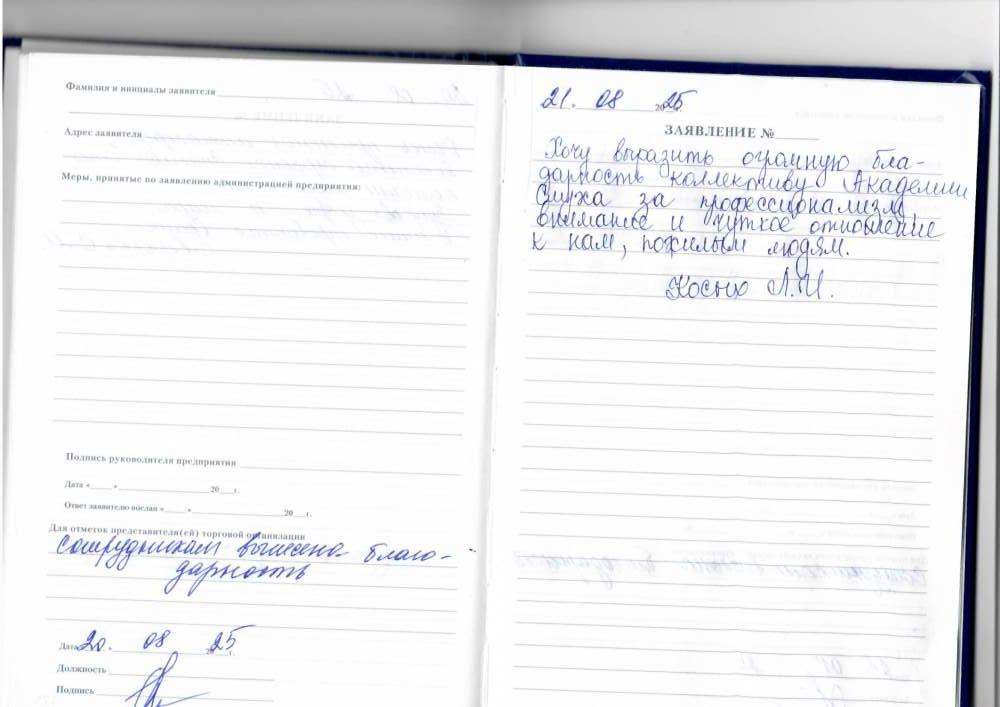 Фамилия и инициалы заявителя
Адрес заявителя
Меры, принятые по заявлению администрацией предприятия:
Подпись руководителя предприятия
Дата « » 20 г.
Ответ заявителю послан « » 20 г.
Для отметок представителя(ей) торговой организации
сотрудникам вынесена благо-
дарность
Дата 20. 08 25 г.
Должность
Подпись
21. 08 2025
ЗАЯВЛЕНИЕ №
Хочу выразить огромную бла-
дарность коллективу Академии
Слуха за профессионализм,
внимание и чуткое отношение
к нам, пожилым людям.
Л.И.